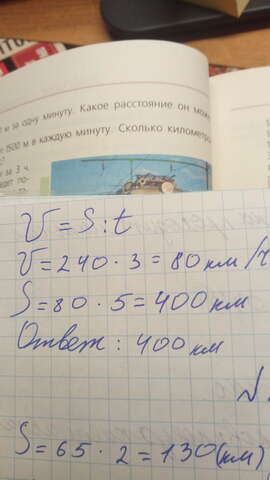 м за одну минуту. Какое расстояние он
1500 м в каждую минуту. Сколько
за 3 ч.
V = S : t
V = 240 · 3 = 80 км/ч
S = 80 · 5 = 400 км
Ответ : 400 км
S = 65 · 2 = 130 (км)